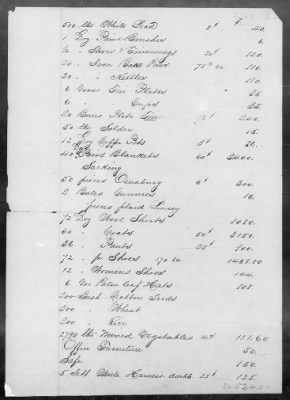 500 lbs White Lead 8¢ 40.
1 Doz Paint Brushes 6.
6 Stove & Trimmings 20¢ 120.
20 " Iron Bake Pans 75¢ ea 110.
20 " Kettles 110.
6 Gross Tin Plates 25.
6 " Cups 25.
20 Boxes Plate Tin 12¢ 240.
50 lbs Solder 15.
12 Doz Coffee Pots 3¢ 36.
40 Pairs Blankets 60¢ 2400.
Sacking
50 pieces Osnaburg 6¢ 300.
2 Bales Gunnies 16.
pieces plaid Linsey
72 Doz Wool Shirts 1080.
60 " Coats 2150.
36 " Pants 25¢ 900.
72 " pr Shoes 170 to 1468.80
12 " Womens Shoes 144.
6 Palm leaf Hats 108.
200 Bush Cotton Seeds
200 " Wheat
200 " Rice
2790 lbs Mixed Vegetables 4¢ 111.60
Office Furniture 50.
Safe 150.
5 Setts Mule Harness doub. 25¢ 125.